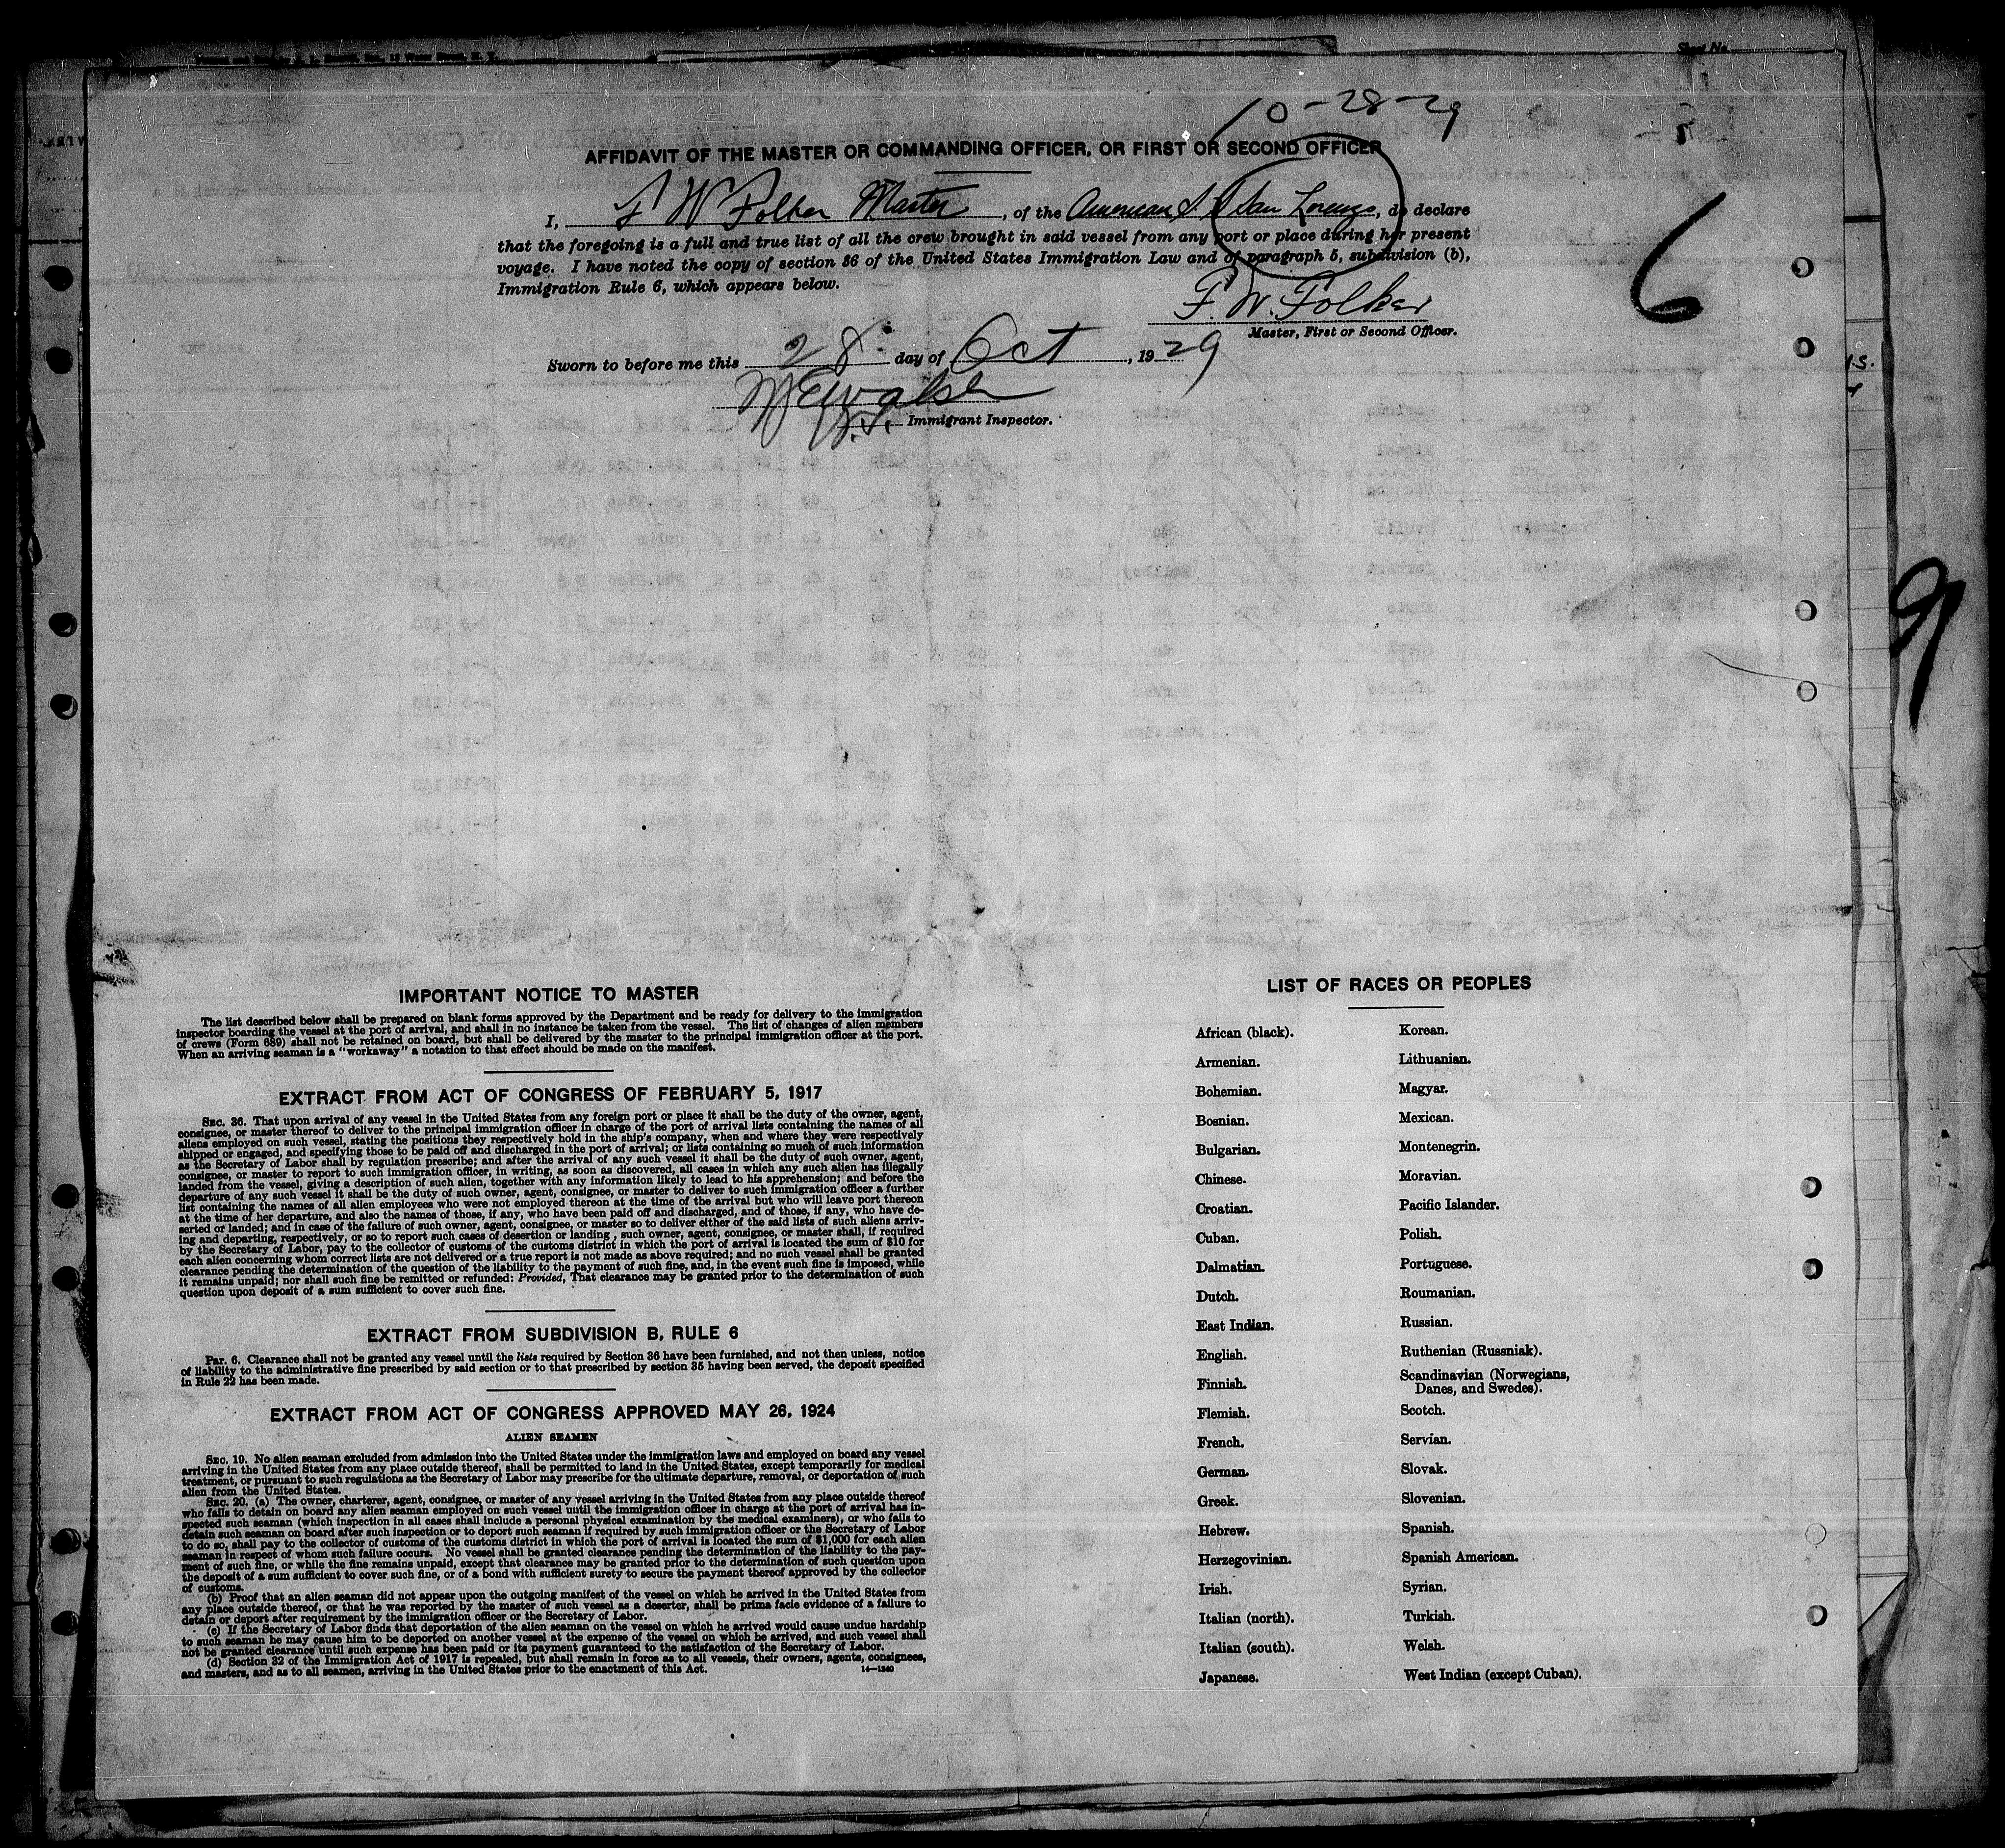 Sheet No.
10-28-29
5
AFFIDAVIT OF THE MASTER OR COMMANDING OFFICER, OR FIRST OR SECOND OFFICER
I, F W Folker Master, of the American S S San Lorenzo, do declare
that the foregoing is a full and true list of all the crew brought in said vessel from any port or place during her present
voyage. I have noted the copy of section 36 of the United States Immigration Law and of paragraph 5, subdivision (b),
Immigration Rule 6, which appears below.
6
F. W. Folker
Master, First or Second Officer.
Sworn to before me this 28 day of Oct, 1929
Immigrant Inspector.
9
IMPORTANT NOTICE TO MASTER
The list described below shall be prepared on blank forms approved by the Department and be ready for delivery to the immigration
inspector boarding the vessel at the port of arrival, and shall in no instance be taken from the vessel. The list of changes of alien members
of crews (Form 689) shall not be retained on board, but shall be delivered by the master to the principal immigration officer at the port.
When an arriving seaman is a "workaway" a notation to that effect should be made on the manifest.
EXTRACT FROM ACT OF CONGRESS OF FEBRUARY 5, 1917
SEC. 36. That upon arrival of any vessel in the United States from any foreign port or place it shall be the duty of the owner, agent,
consignee, or master thereof to deliver to the principal immigration officer in charge of the port of arrival lists containing the names of all
aliens employed on such vessel, stating the positions they respectively hold in the ship's company, when and where they were respectively
shipped or engaged, and specifying those to be paid off and discharged in the port of arrival; or lists containing so much of such information
as the Secretary of Labor shall by regulation prescribe; and after the arrival of any such vessel it shall be the duty of such owner, agent,
consignee, or master to report to such immigration officer, in writing, as soon as discovered, all cases in which any such alien has illegally
landed from the vessel, giving a description of such alien, together with any information likely to lead to his apprehension; and before the
departure of any such vessel it shall be the duty of such owner, agent, consignee, or master to deliver to such immigration officer a further
list containing the names of all alien employees who were not employed thereon at the time of the arrival but who will leave port thereon
at the time of her departure, and also the names of those, if any, who have been paid off and discharged, and of those, if any, who have de-
serted or landed; and in case of the failure of such owner, agent, consignee, or master so to deliver either of the said lists of such aliens arriv-
ing and departing, respectively, or so to report such cases of desertion or landing , such owner, agent, consignee, or master shall, if required
by the Secretary of Labor, pay to the collector of customs of the customs district in which the port of arrival is located the sum of $10 for
each alien concerning whom correct lists are not delivered or a true report is not made as above required; and no such vessel shall be granted
clearance pending the determination of the question of the liability to the payment of such fine, and, in the event such fine is imposed, while
it remains unpaid; nor shall such fine be remitted or refunded: Provided, That clearance may be granted prior to the determination of such
question upon deposit of a sum sufficient to cover such fine.
EXTRACT FROM SUBDIVISION B, RULE 6
PAR. 6. Clearance shall not be granted any vessel until the lists required by Section 36 have been furnished, and not then unless, notice
of liability to the administrative fine prescribed by said section or to that prescribed by section 35 having been served, the deposit specified
in Rule 22 has been made.
EXTRACT FROM ACT OF CONGRESS APPROVED MAY 26, 1924
ALIEN SEAMEN
SEC. 19. No alien seaman excluded from admission into the United States under the immigration laws and employed on board any vessel
arriving in the United States from any place outside thereof, shall be permitted to land in the United States, except temporarily for medical
treatment, or pursuant to such regulations as the Secretary of Labor may prescribe for the ultimate departure, removal, or deportation of such
alien from the United States.
SEC. 20. (a) The owner, charterer, agent, consignee, or master of any vessel arriving in the United States from any place outside thereof
who fails to detain on board any alien seaman employed on such vessel until the immigration officer in charge at the port of arrival has in-
spected such seaman (which inspection in all cases shall include a personal physical examination by the medical examiners), or who fails to
detain such seaman on board after such inspection or to deport such seaman if required by such immigration officer or the Secretary of Labor
to do so, shall pay to the collector of customs of the customs district in which the port of arrival is located the sum of $1,000 for each alien
seaman in respect of whom such failure occurs. No vessel shall be granted clearance pending the determination of the liability to the pay-
ment of such fine, or while the fine remains unpaid, except that clearance may be granted prior to the determination of such question upon
the deposit of a sum sufficient to cover such fine, or of a bond with sufficient surety to secure the payment thereof approved by the collector
of customs.
(b) Proof that an alien seaman did not appear upon the outgoing manifest of the vessel on which he arrived in the United States from
any place outside thereof, or that he was reported by the master of such vessel as a deserter, shall be prima facie evidence of a failure to
detain or deport after requirement by the immigration officer or the Secretary of Labor.
(c) If the Secretary of Labor finds that deportation of the alien seaman on the vessel on which he arrived would cause undue hardship
to such seaman he may cause him to be deported on another vessel at the expense of the vessel on which he arrived, and such vessel shall
not be granted clearance until such expense has been paid or its payment guaranteed to the satisfaction of the Secretary of Labor.
(d) Section 32 of the Immigration Act of 1917 is repealed, but shall remain in force as to all vessels, their owners, agents, consignees,
and masters, and as to all seamen, arriving in the United States prior to the enactment of this Act.
14—1240
LIST OF RACES OR PEOPLES
African (black).
Armenian.
Bohemian.
Bosnian.
Bulgarian.
Chinese.
Croatian.
Cuban.
Dalmatian.
Dutch.
East Indian.
English.
Finnish.
Flemish.
French.
German.
Greek.
Hebrew.
Herzegovinian.
Irish.
Italian (north).
Italian (south).
Japanese.
Korean.
Lithuanian.
Magyar.
Mexican.
Montenegrin.
Moravian.
Pacific Islander.
Polish.
Portuguese.
Roumanian.
Russian.
Ruthenian (Russniak).
Scandinavian (Norwegians,
Danes, and Swedes).
Scotch.
Servian.
Slovak.
Slovenian.
Spanish.
Spanish American.
Syrian.
Turkish.
Welsh.
West Indian (except Cuban).